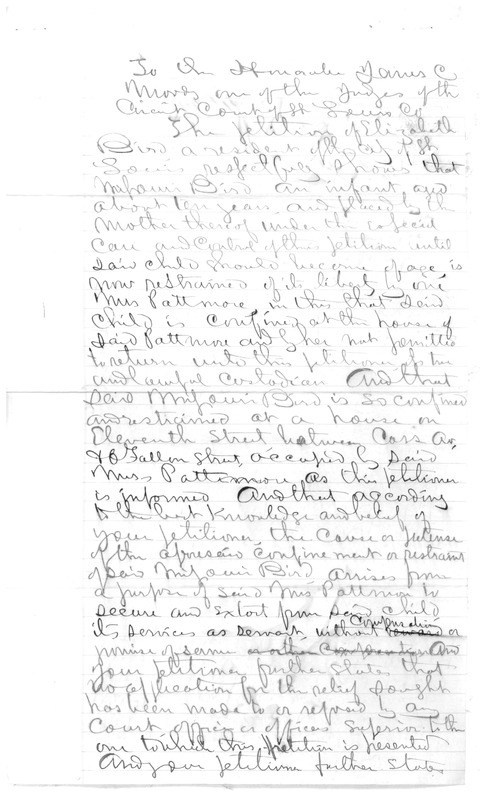 To the Honorable James C
Moody one of the Judges of the
Circuit Court of St Louis Co
The petition of Elizabeth
Bird a resident of the City of St
Louis respectfully shows that
Missouri Bird an infant, aged
about ten years and placed by the
mother thereof under the especial
Care and Control of this petition until
said child should become of age, is
now restrained of its liberty by one
Miss Pattmore, in this that said
child is confined at the house of
said Pattmore and by her not permitted
to return unto this petitioner its true
and lawful custodian And that
said Missouri Bird is so confined
and restrained at a house on
Eleventh Street between Cass Av,
& O'Fallon Street, occupied by said
Miss Pattmore, as this petitioner
is informed And that according
to the best knowledge and belief of
your petitioner, the Cause or pretense
of the aforesaid confinement or restraint
of said Missouri Bird arises from
a purpose of said Miss Pattmore to
secure and extort from said child
its services as servant, without compensation or
promise of same or other Compensation And
your petitioner further states that
no application for the relief sought
has been made to or refused by any
Court officer or officers Superior to the
one to which this petition is presented
And your petitioner further states